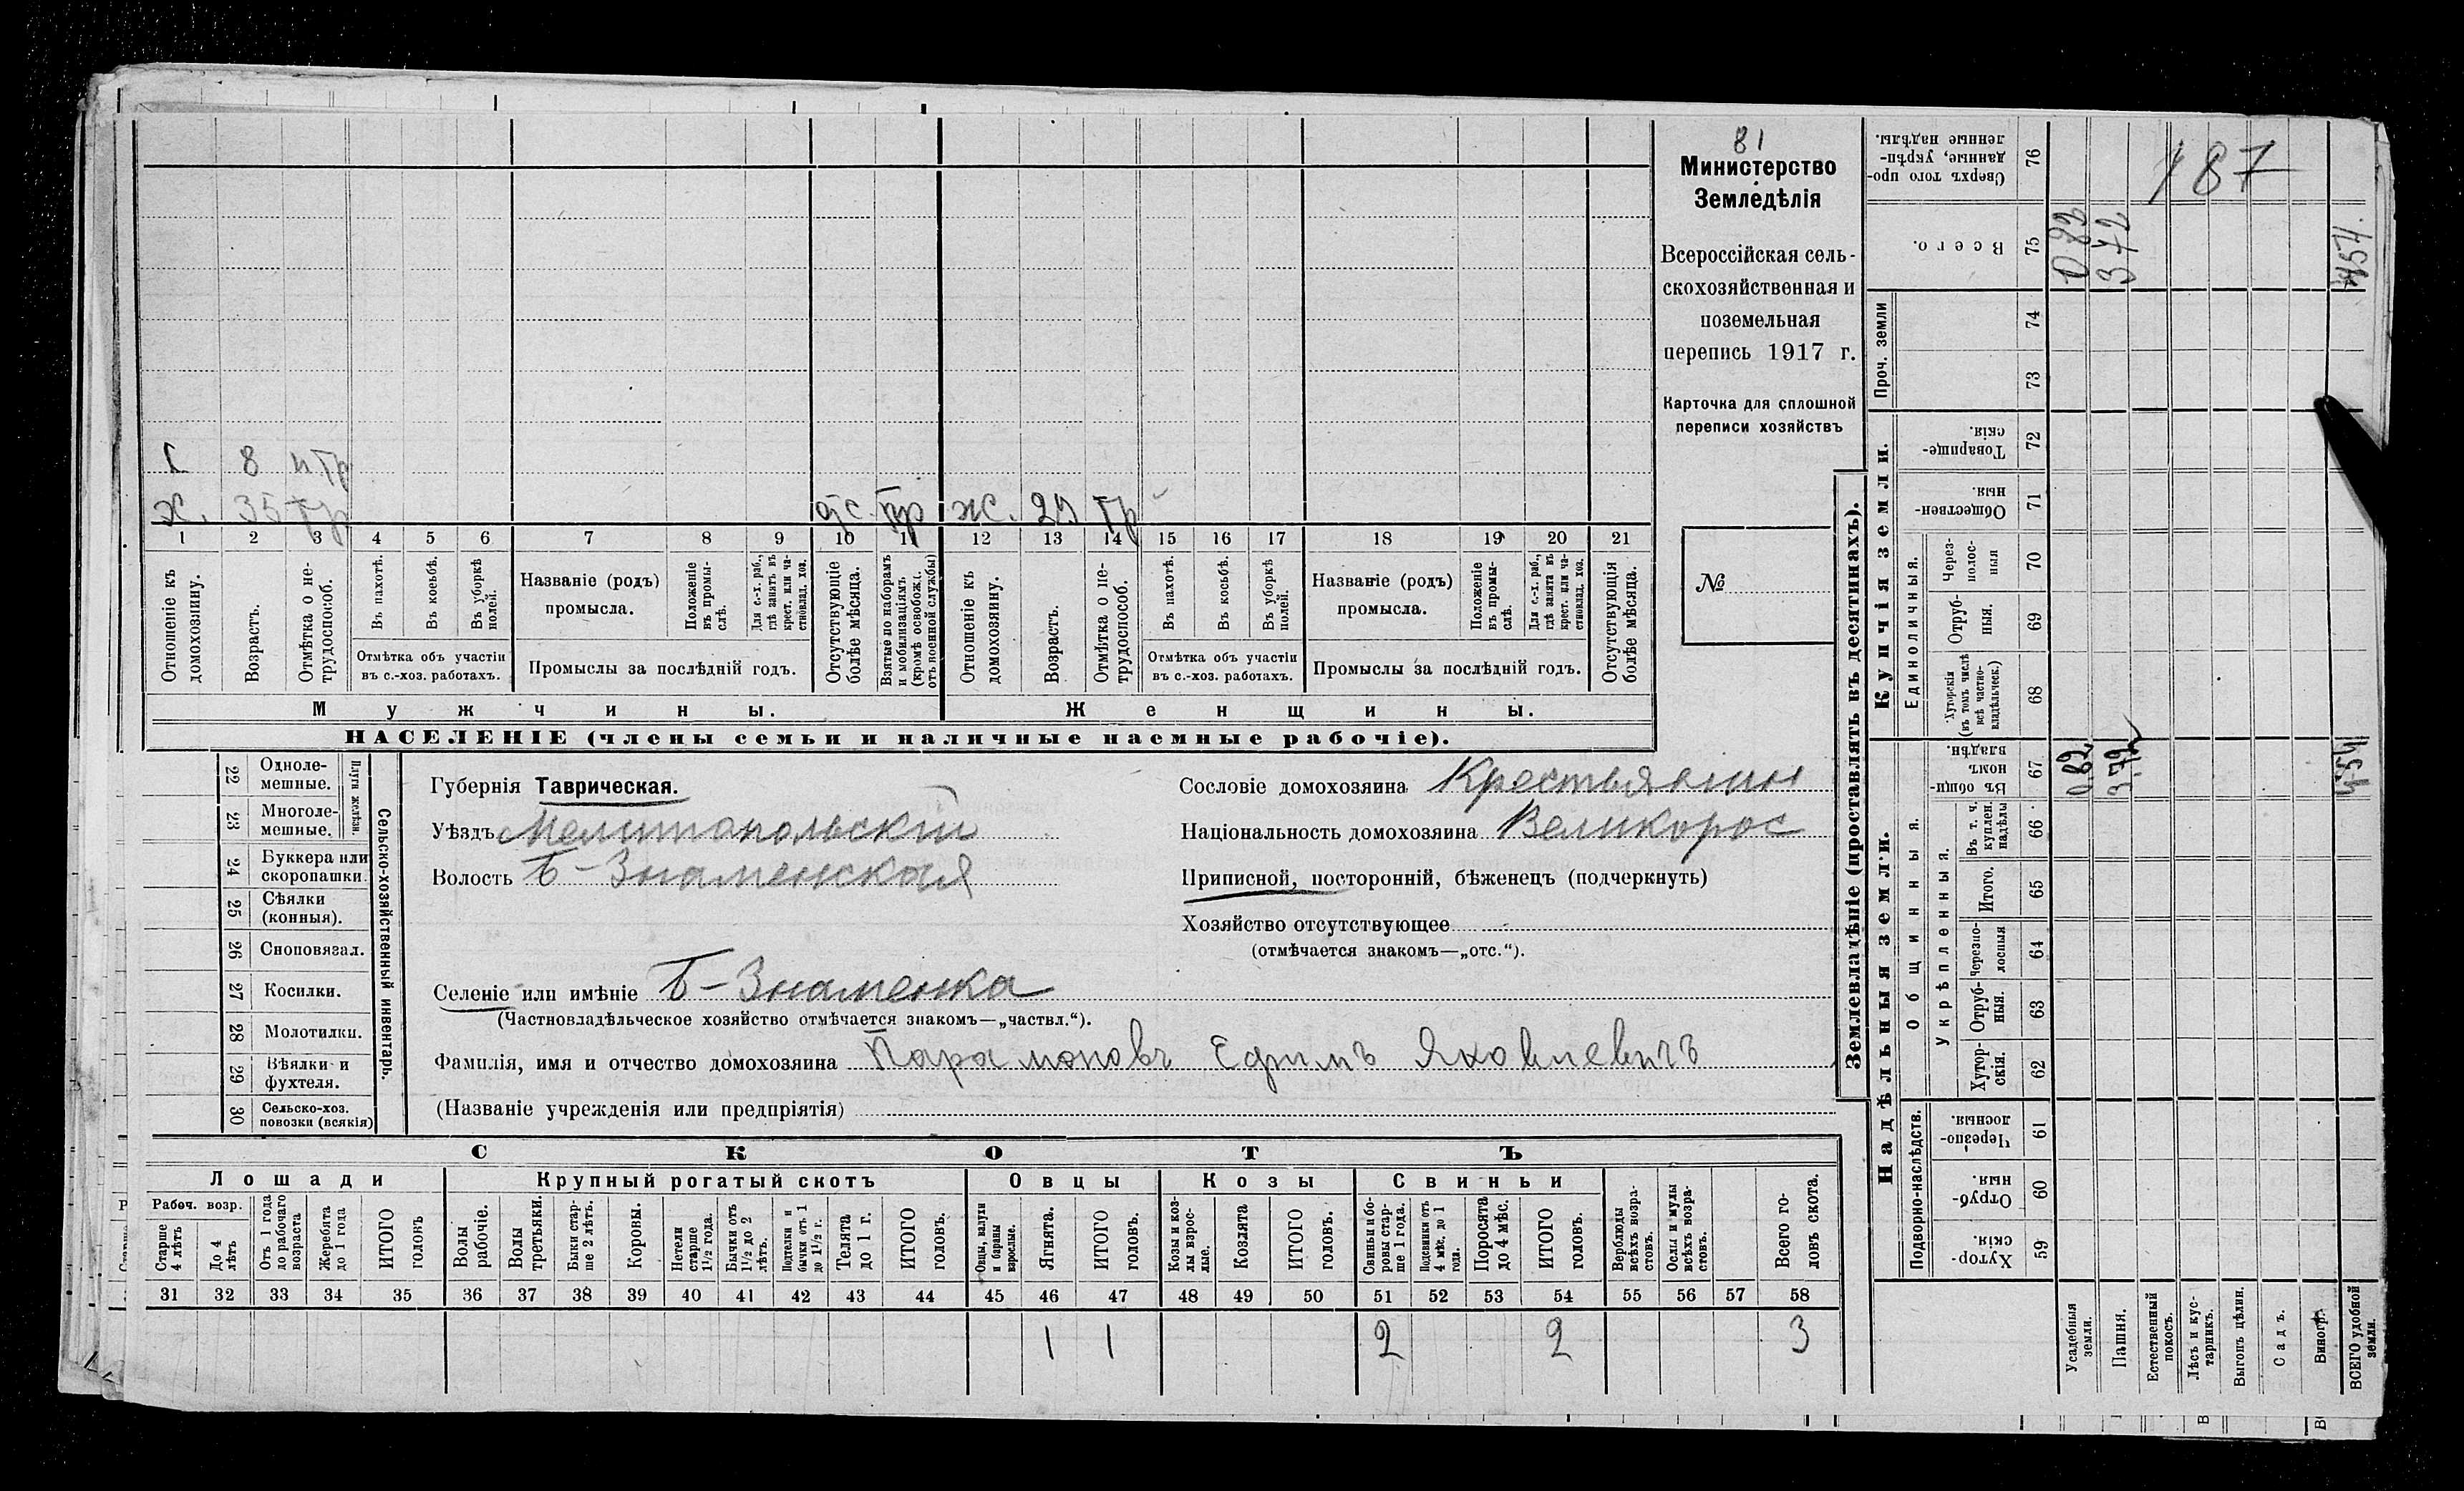 81
Министерство
Земледѣлія
Всероссійская сель-
скохозяйственная и
поземельная
перепись 1917 г.
Карточка для сплошной
переписи хозяйствъ
№
с 8 нтр
х. 35 тр отс. тр ж. тр
1 2 3 4 5 6 7 8 9 10 11 12 13 14 15 16 17 18 19 20 21
Отношеніе къ домохозяину.
Возрастъ.
Отмѣтка о не-трудоспособ.
Въ пахотѣ.
Въ косьбѣ.
Въ уборкѣ полей.
Отмѣтка объ участіи
въ с.-хоз. работахъ.
Названіе (родъ)
промысла.
Положеніе въ промы-слѣ.
Для с.-х. раб., гдѣ занятъ въ крест. или ча-стновлад. хоз.
Промыслы за послѣдній годъ.
Отсутствующіе болѣе мѣсяца.
Взятые по наборамъ и мобилизаціямъ (кромѣ освобожд. отъ военной службы)
Отношеніе къ домохозяину.
Возрастъ.
Отмѣтка о не-трудоспособ.
Въ пахотѣ.
Въ косьбѣ.
Въ уборкѣ полей.
Отмѣтка объ участіи
въ с.-хоз. работахъ.
Названіе (родъ)
промысла.
Положеніе въ промы-слѣ.
Для с.-х. раб., гдѣ занята въ крест. или ча-стновлад. хоз.
Промыслы за послѣдній годъ.
Отсутствующія болѣе мѣсяца.
Мужчины.
Женщины.
НАСЕЛЕНІЕ (члены семьи и наличные наемные рабочіе).
22 Одноле-мешные.
23 Многоле-мешные.
Плуги желѣзн.
24 Буккера или скоропашки.
25 Сѣялки (конныя).
26 Сноповязал.
27 Косилки.
28 Молотилки.
29 Вѣялки и фухтеля.
30 Сельско-хоз. повозки (всякія)
Сельско-хозяйственный инвентарь.
Губернія Таврическая.
Уѣздъ Мелитопольскій
Волость Б-Знаменская
Селеніе или имѣніе Б-Знаменка
(Частновладѣльческое хозяйство отмѣчается знакомъ—„частвл.“).
Фамилія, имя и отчество домохозяина Парамоновъ Ефимъ Яковлевичъ
(Названіе учрежденія или предпріятія)
Сословіе домохозяина Крестьянин
Національность домохозяина Великорос
Приписной, посторонній, бѣженецъ (подчеркнуть)
Хозяйство отсутствующее
(отмѣчается знакомъ—„отс.“).
СКОТЪ
Лошади
Крупный рогатый скотъ
Овцы
Козы
Свиньи
Рабоч. возр.
Старше 4 лѣтъ
До 4 лѣтъ
Отъ 1 года до рабочаго возраста
Жеребята до 1 года
ИТОГО головъ
Волы рабочіе.
Волы третьяки.
Быки стар-ше 2 лѣтъ.
Коровы.
Нетели старше 1½ года.
Бычки отъ 1½ до 2 лѣтъ.
Подтелки и бычки отъ 1 до 1½ г.
Телята до 1 г.
ИТОГО головъ.
Овцы, валухи и бараны взрослые.
Ягнята.
ИТОГО головъ.
Козы и коз-лы взрос-лые.
Козлята
ИТОГО головъ.
Свиньи и бо-ровы стар-ше 1 года.
Подсвинки отъ 4 мѣс. до 1 года.
Поросята до 4 мѣс.
ИТОГО головъ.
Верблюды всѣхъ возра-стовъ.
Ослы и мулы всѣхъ возра-стовъ.
Всего го-ловъ скота.
31 32 33 34 35 36 37 38 39 40 41 42 43 44 45 46 47 48 49 50 51 52 53 54 55 56 57 58
1 1 2 2 3
Землевладѣніе (проставлять въ десятинахъ).
Надѣльныя земли.
Купчія земли.
Проч. земли
Подворно-наслѣдств.
Общинныя.
Укрѣпленныя.
Единоличныя.
Хутор-скія 59
Отруб-ныя. 60
Черезпо-лосныя. 61
Хутор-скія. 62
Отруб-ныя. 63
Черезпо-лосныя 64
Итого. 65
Въ т. ч. куплен. надѣлы 66
Въ общи-номъ владѣн. 67
Хуторскія (въ томъ числѣ всѣ частно-владѣльческ.) 68
Отруб-ныя. 69
Через-полос-ныя 70
Обществен-ныя. 71
Товарище-скія. 72
73
74
Всего. 75
Сверхъ того про-данные, укрѣп-ленные надѣлы. 76
Усадебныя земли. 0,82 0,82
Пашня. 3,72 372
Естественный покосъ.
Лѣсъ и кус-тарникъ.
Выгонъ цѣлин.
Садъ.
Виногр.
ВСЕГО удобной земли. 4,54 454
187